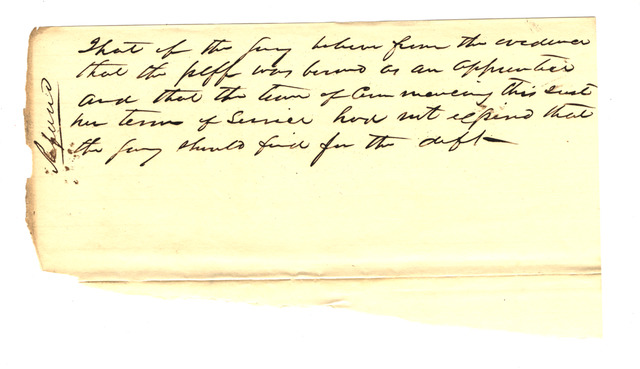 That if the jury believe from the evidence
that the plff was bound as an apprentice
and that the time of Commencing this suit
her term of Service had not expired that
the jury should find for the deft
Refused